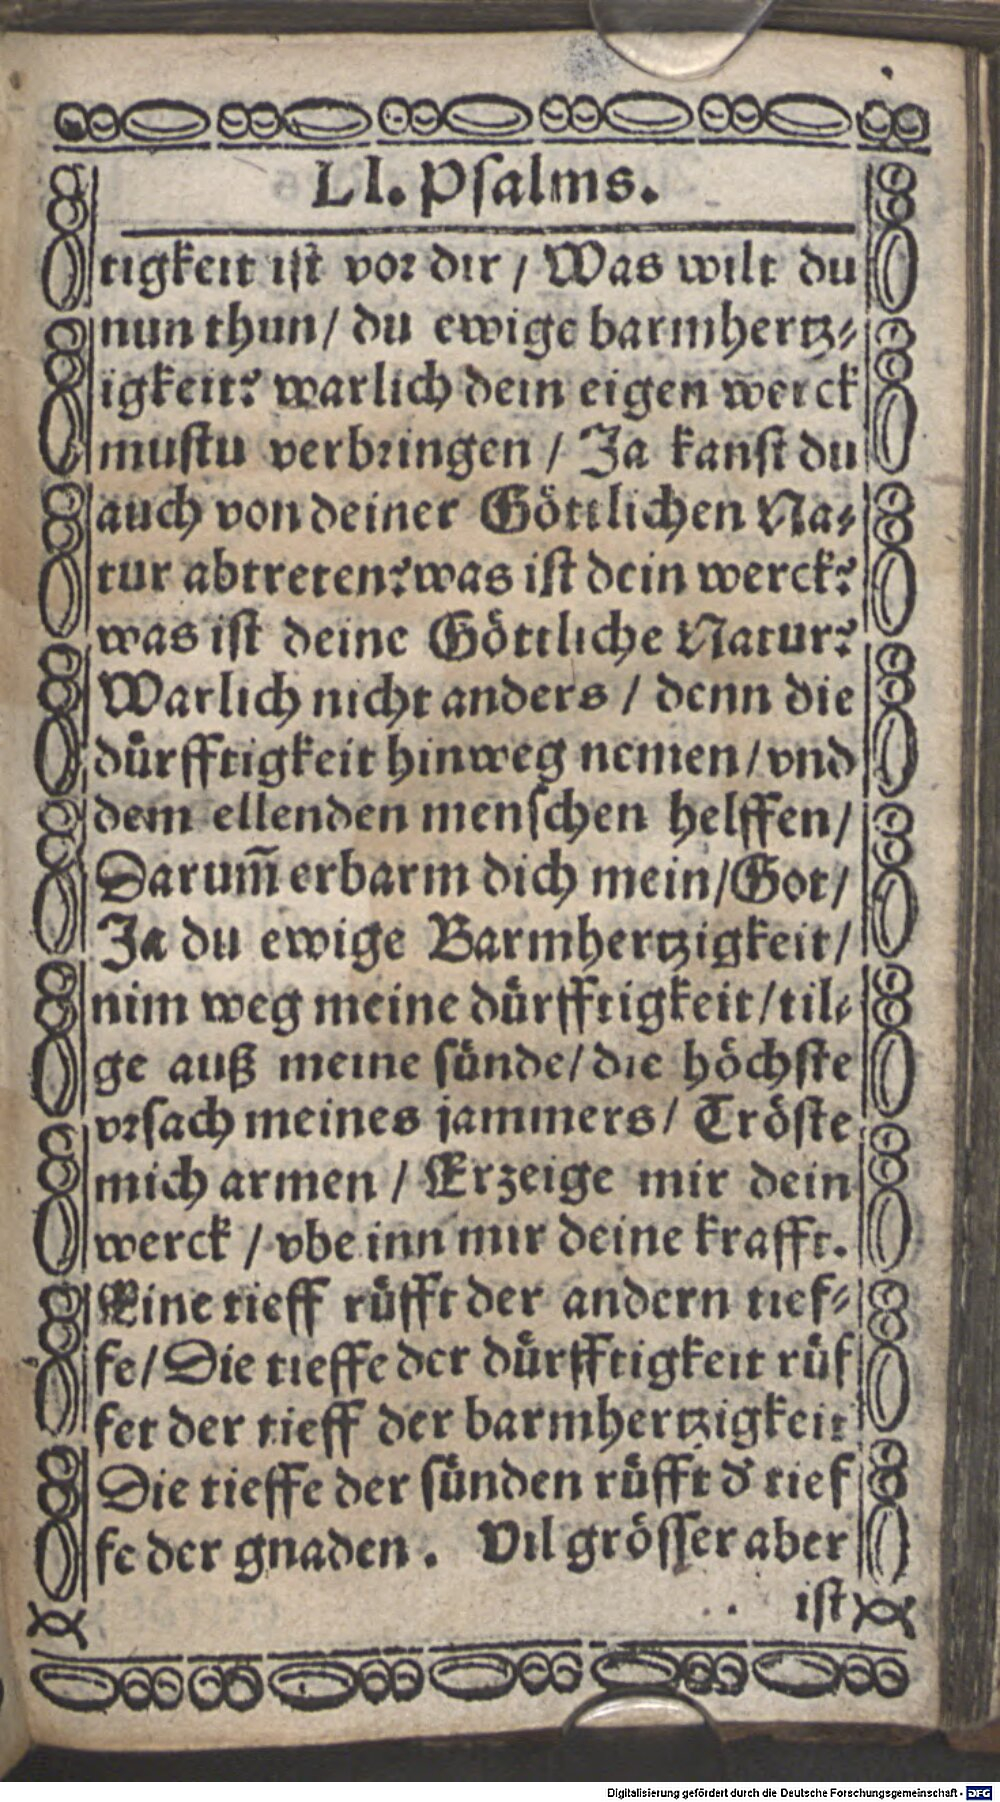 LI. Psalms.
tigkeit ist vor dir / Was wilt du
nun thun / du ewige barmhertz⸗
igkeit? warlich dein eigen werck
mustu verbringen / Ja kanst du
auch von deiner Göttlichen Na⸗
tur abtreten? was ist dein werck?
was ist deine Göttliche Natur?
Warlich nicht anders / denn die
dürfftigkeit hinweg nemen / vnd
dem ellenden menschen helffen /
Darum̃ erbarm dich mein / Got /
Ja du ewige Barmhertzigkeit /
nim weg meine dürfftigkeit / til⸗
ge auß meine sünde / die höchste
vrsach meines jammers / Tröste
mich armen / Erzeige mir dein
werck / vbe inn mir deine krafft.
Eine tieff rüfft der andern tief⸗
fe / Die tieffe der dürfftigkeit rüf
fet der tieff der barmhertzigkeit
Die tieffe der sünden rüfft d' tief
fe der gnaden. Vil grösser aber
ist
Digitalisierung gefördert durch die Deutsche Forschungsgemeinschaft - DFG